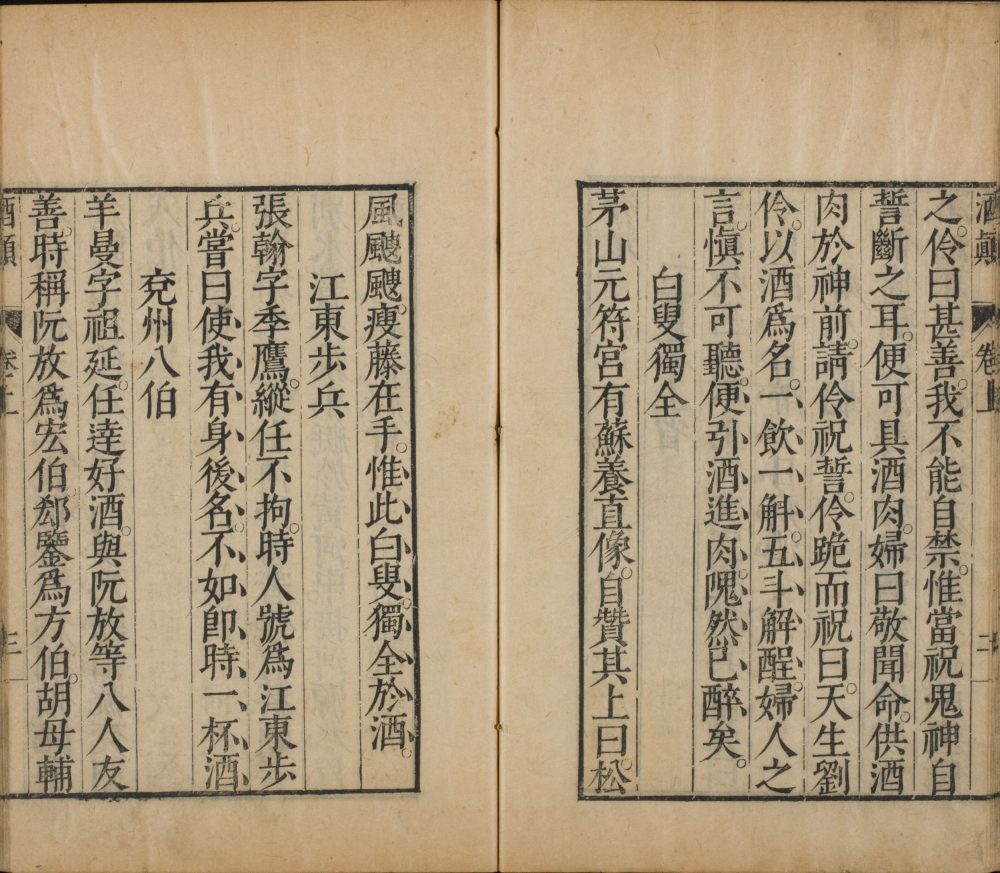 酒顛 卷上 二
之伶曰甚善我不能自禁惟當祝鬼神自
誓斷之耳便可具酒肉婦曰敬聞命供酒
肉於神前請伶祝誓伶跪而祝曰天生劉
伶以酒爲名一飲一斛五斗解酲婦人之
言慎不可聽便引酒進肉隗然已醉矣
白叟獨全
茅山元符宮有蘇養直像自贊其上曰松
風颼颼瘦藤在手惟此白叟獨全於酒
江東步兵
張翰字季鷹縱任不拘時人號爲江東步
兵嘗曰使我有身後名不如卽時一杯酒
兗州八伯
羊曼字祖延任達好酒與阮放等八人友
善時稱阮放爲宏伯郄鑒爲方伯胡母輔
酒顛 卷上 三